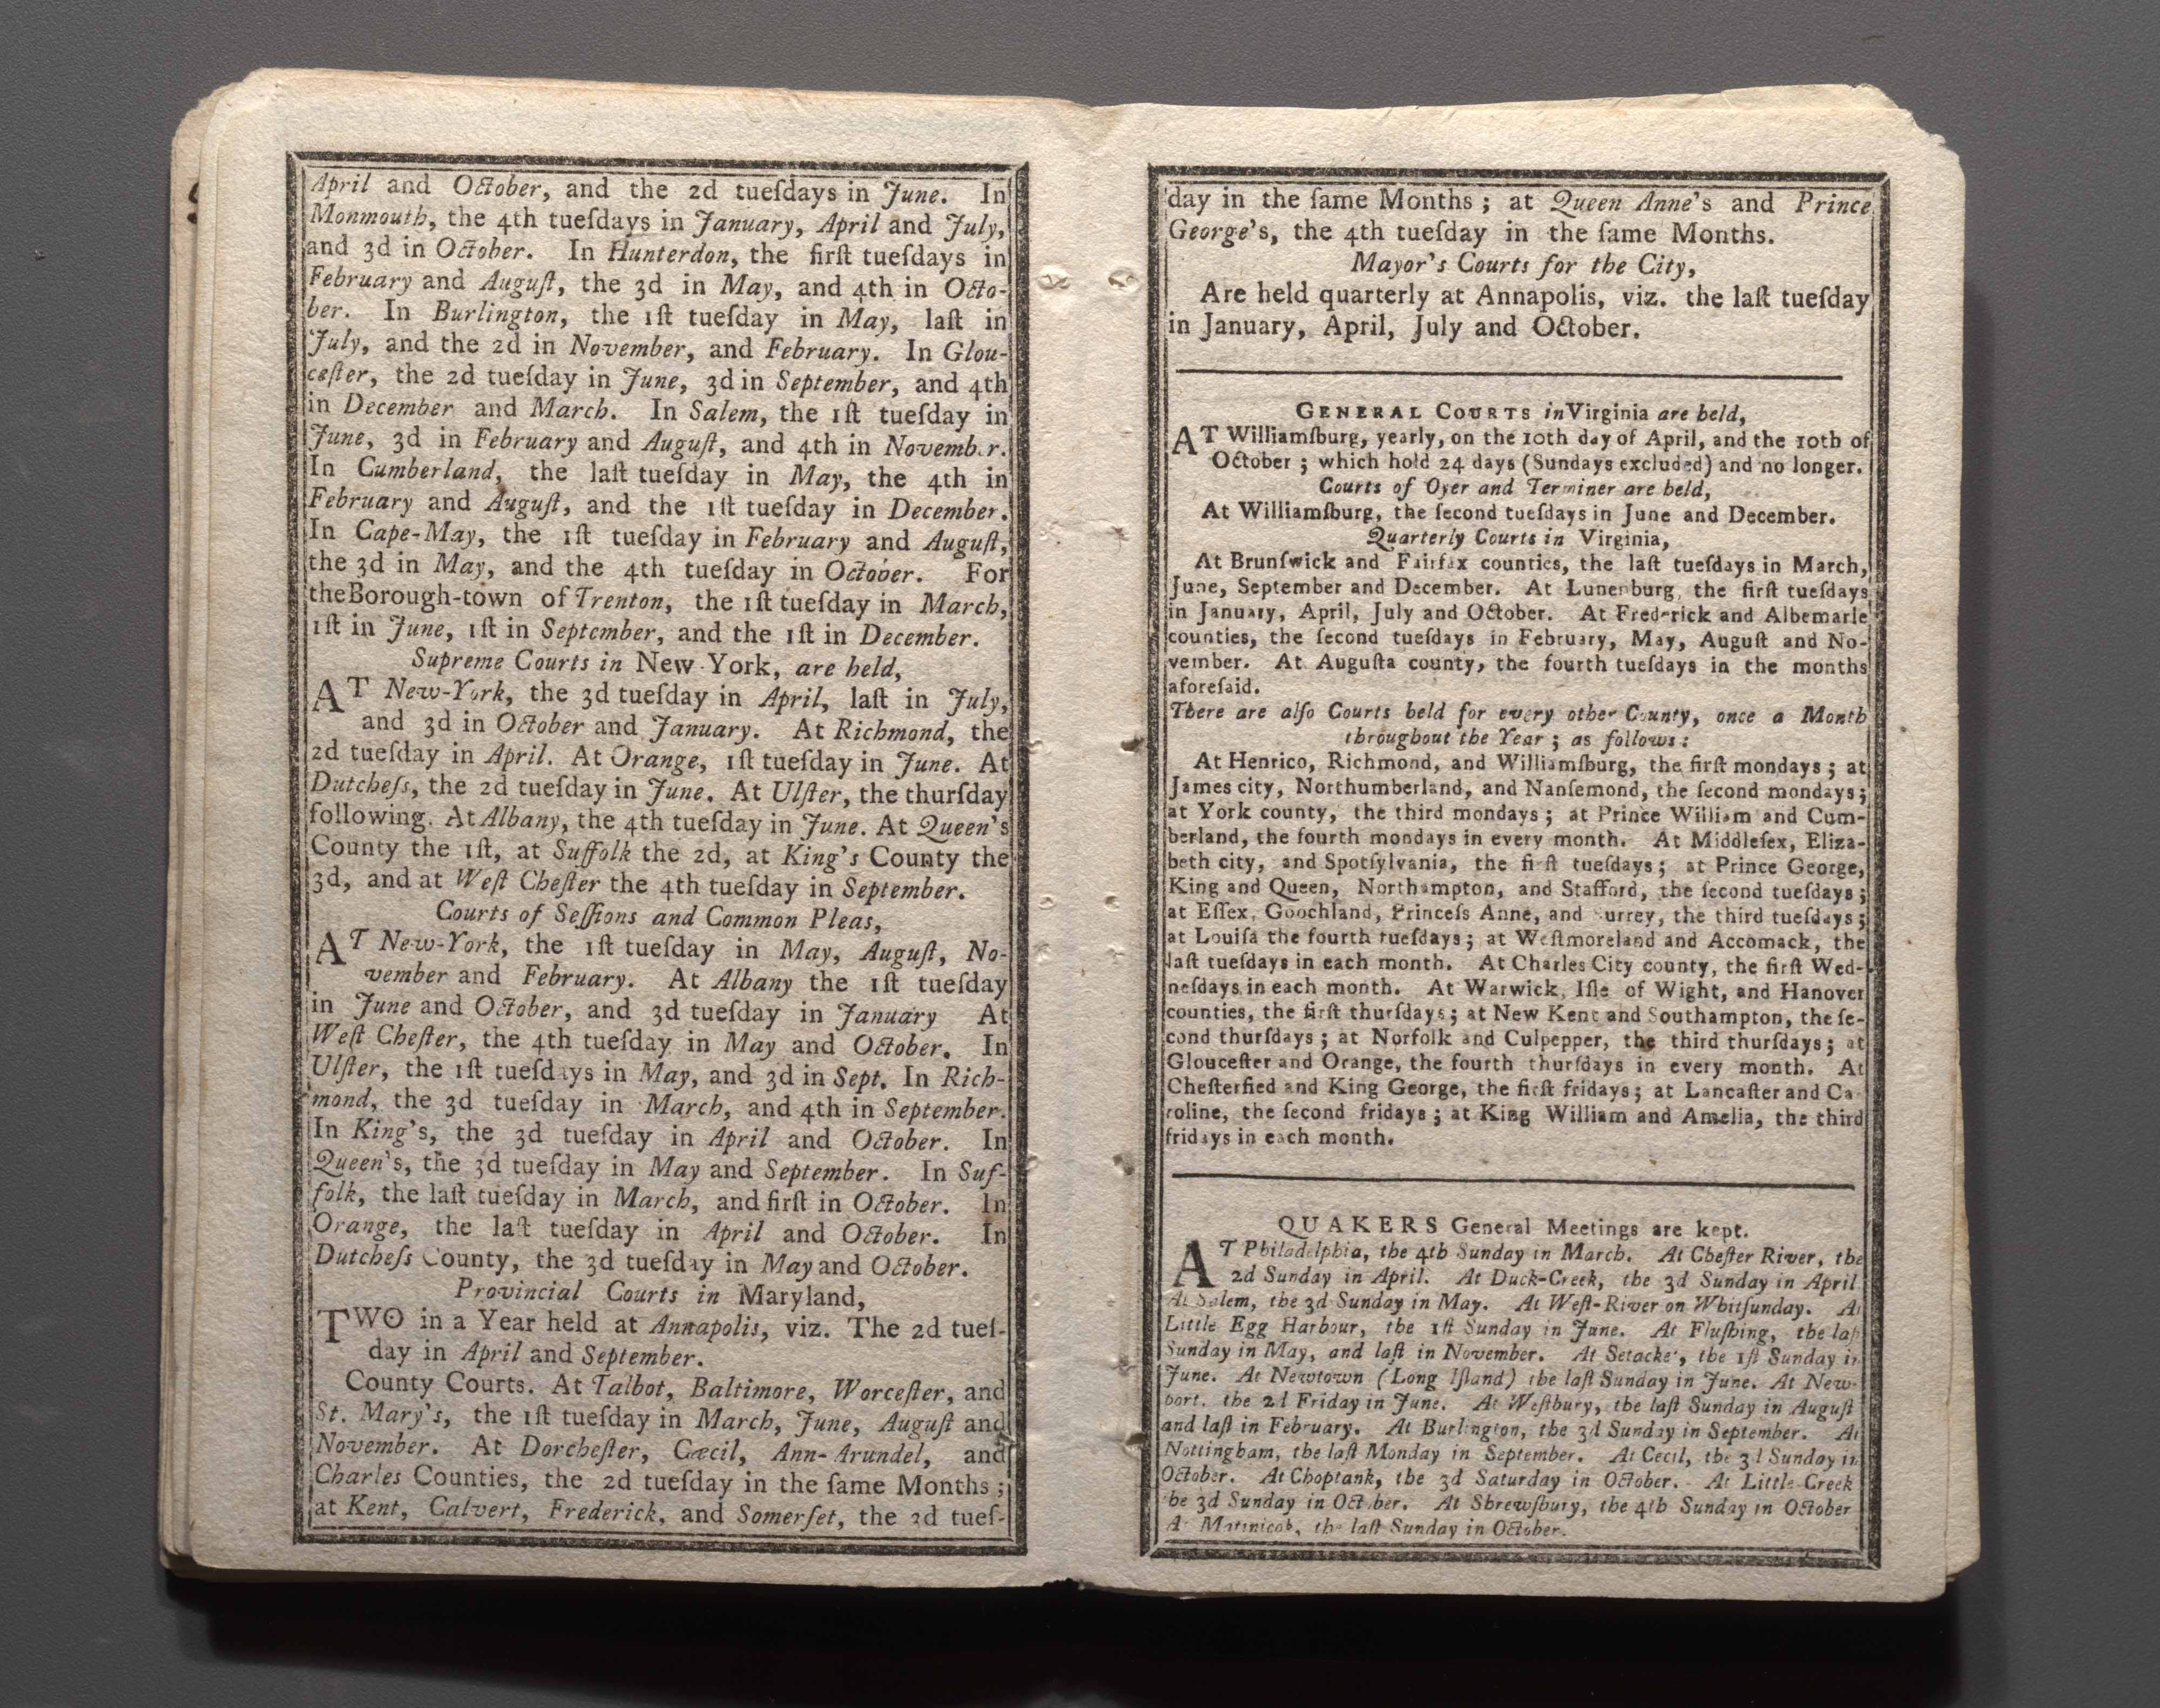 April and October, and the 2d tueſdays in June. In
Monmouth, the 4th tueſdays in January, April and July,
and 3d in October. In Hunterdon, the firſt tueſdays in
February and Auguſt, the 3d in May, and 4th in Octo-
ber. In Burlington, the 1ſt tueſday in May, laſt in
July, and the 2d in November, and February. In Glou-
ceſter, the 2d tueſday in June, 3d in September, and 4th
in December and March. In Salem, the 1ſt tueſday in
June, 3d in February and Auguſt, and 4th in November.
In Cumberland, the laſt tueſday in May, the 4th in
February and Auguſt, and the 1ſt tueſday in December.
In Cape-May, the 1ſt tueſday in February and Auguſt,
the 3d in May, and the 4th tueſday in October. For
theBorough-town of Trenton, the 1ſt tueſday in March,
1ſt in June, 1ſt in September, and the 1ſt in December.
Supreme Courts in New-York, are held,
AT New-York, the 3d tueſday in April, laſt in July,
and 3d in October and January. At Richmond, the
2d tueſday in April. At Orange, 1ſt tueſday in June. At
Dutcheſs, the 2d tueſday in June. At Ulſter, the thurſday
following. At Albany, the 4th tueſday in June. At Queen's
County the 1ſt, at Suffolk the 2d, at King's County the
3d, and at Weſt Cheſter the 4th tueſday in September.
Courts of Seſſions and Common Pleas,
AT New-York, the 1ſt tueſday in May, Auguſt, No-
vember and February. At Albany the 1ſt tueſday
in June and October, and 3d tueſday in January At
Weſt Cheſter, the 4th tueſday in May and October. In
Ulſter, the 1ſt tueſdays in May, and 3d in Sept. In Rich-
mond, the 3d tueſday in March, and 4th in September.
In King's, the 3d tueſday in April and October. In
Queen's, the 3d tueſday in May and September. In Suf-
folk, the laſt tueſday in March, and firſt in October. In
Orange, the laſt tueſday in April and October. In
Dutcheſs County, the 3d tueſday in May and October.
Provincial Courts in Maryland,
TWO in a Year held at Annapolis, viz. The 2d tueſ-
day in April and September.
County Courts. At Talbot, Baltimore, Worceſter, and
St. Mary's, the 1ſt tueſday in March, June, Auguſt and
November. At Dorcheſter, Cæcil, Ann-Arundel, and
Charles Counties, the 2d tueſday in the ſame Months;
at Kent, Calvert, Frederick, and Somerſet, the 3d tueſ-
day in the ſame Months; at Queen Anne's and Prince
George's, the 4th tueſday in the ſame Months.
Mayor's Courts for the City,
Are held quarterly at Annapolis, viz. the laſt tueſday
in January, April, July and October.
GENERAL COURTS in Virginia are held,
AT Williamſburg, yearly, on the 10th day of April, and the 10th of
October; which hold 24 days (Sundays excluded) and no longer.
Courts of Oyer and Terminer are held,
At Williamſburg, the ſecond tueſdays in June and December.
Quarterly Courts in Virginia,
At Brunſwick and Fairfax counties, the laſt tueſdays in March,
June, September and December. At Lunenburg, the firſt tueſdays
in January, April, July and October. At Frederick and Albemarle
counties, the ſecond tueſdays in February, May, Auguſt and No-
vember. At Auguſta county, the fourth tueſdays in the months
aforeſaid.
There are alſo Courts held for every other County, once a Month
throughout the Year; as follows:
At Henrico, Richmond, and Williamſburg, the firſt mondays; at
James city, Northumberland, and Nanſemond, the ſecond mondays;
at York county, the third mondays; at Prince William and Cum-
berland, the fourth mondays in every month. At Middleſex, Eliza-
beth city, and Spotſylvania, the firſt tueſdays; at Prince George,
King and Queen, Northampton, and Stafford, the ſecond tueſdays;
at Eſſex, Goochland, Princeſs Anne, and Surrey, the third tueſdays;
at Louiſa the fourth tueſdays; at Weſtmoreland and Accomack, the
laſt tueſdays in each month. At Charles City county, the firſt Wed-
neſdays in each month. At Warwick, Iſle of Wight, and Hanover
counties, the firſt thurſdays; at New Kent and Southampton, the ſe-
cond thurſdays; at Norfolk and Culpepper, the third thurſdays; at
Glouceſter and Orange, the fourth thurſdays in every month. At
Cheſterfied and King George, the firſt fridays; at Lancaſter and Ca
roline, the ſecond fridays; at King William and Amelia, the third
fridays in each month.
QUAKERS General Meetings are kept.
AT Philadelphia, the 4th Sunday in March. At Cheſter River, the
2d Sunday in April. At Duck-Creek, the 3d Sunday in April
At Salem, the 3d Sunday in May. At Weſt-River on Whitſunday. At
Little Egg Harbour, the 1ſt Sunday in June. At Fluſhing, the laſt
Sunday in May, and laſt in November. At Setacket, the 1ſt Sunday in
June. At Newtown (Long Iſland) the laſt Sunday in June. At New-
port. the 2d Friday in June. At Weſtbury, the laſt Sunday in Auguſt
and laſt in February. At Burlington, the 3d Sunday in September. At
Nottingham, the laſt Monday in September. At Cecil, the 3d Sunday in
October. At Choptank, the 3d Saturday in October. At Little Creek
the 3d Sunday in October. At Shrewſbury, the 4th Sunday in October
At Matinicok, the laſt Sunday in October.